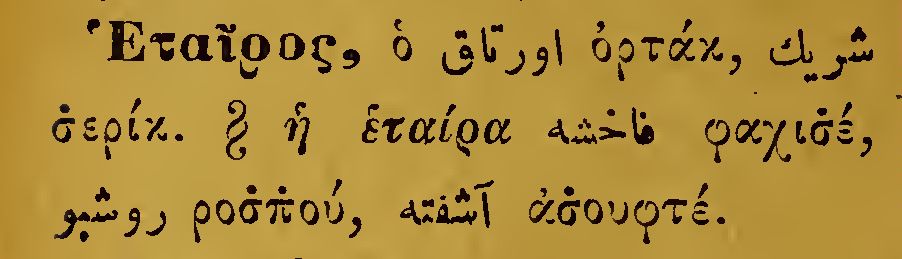 Ἑταῖρος, ὁ اورتاق ὀρτάκ, شريك
σ̇ερίκ. ἡ ἑταίρα فاحشه φαχισ̇έ,
روشپو ροσ̇π̇ού, آشفته ἀσ̇ουφτέ.